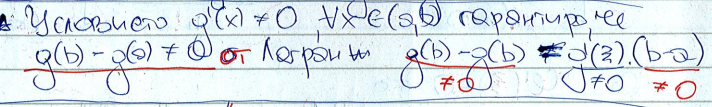 Условието g'(x) ≠ 0, ∀x ∈ (a,b) гарантира, че
g(b) - g(a) ≠ 0 от Лагранж g(b) - g(b) = g'(ξ).(b-a)
≠0 ≠0 ≠0